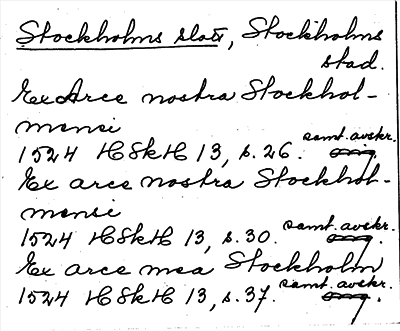 Stockholms slott, Stockholms
stad.
Ex Arce nostra Stockhol-
mensi
1524 HSkH 13, s. 26. samt. avskr.
Ex arce nostra Stockhol-
mensi
1524 HSkH 13, s. 30. samt. avskr.
Ex arce mea Stockholm
1524 HSkH 13, s. 37. samt. avskr.